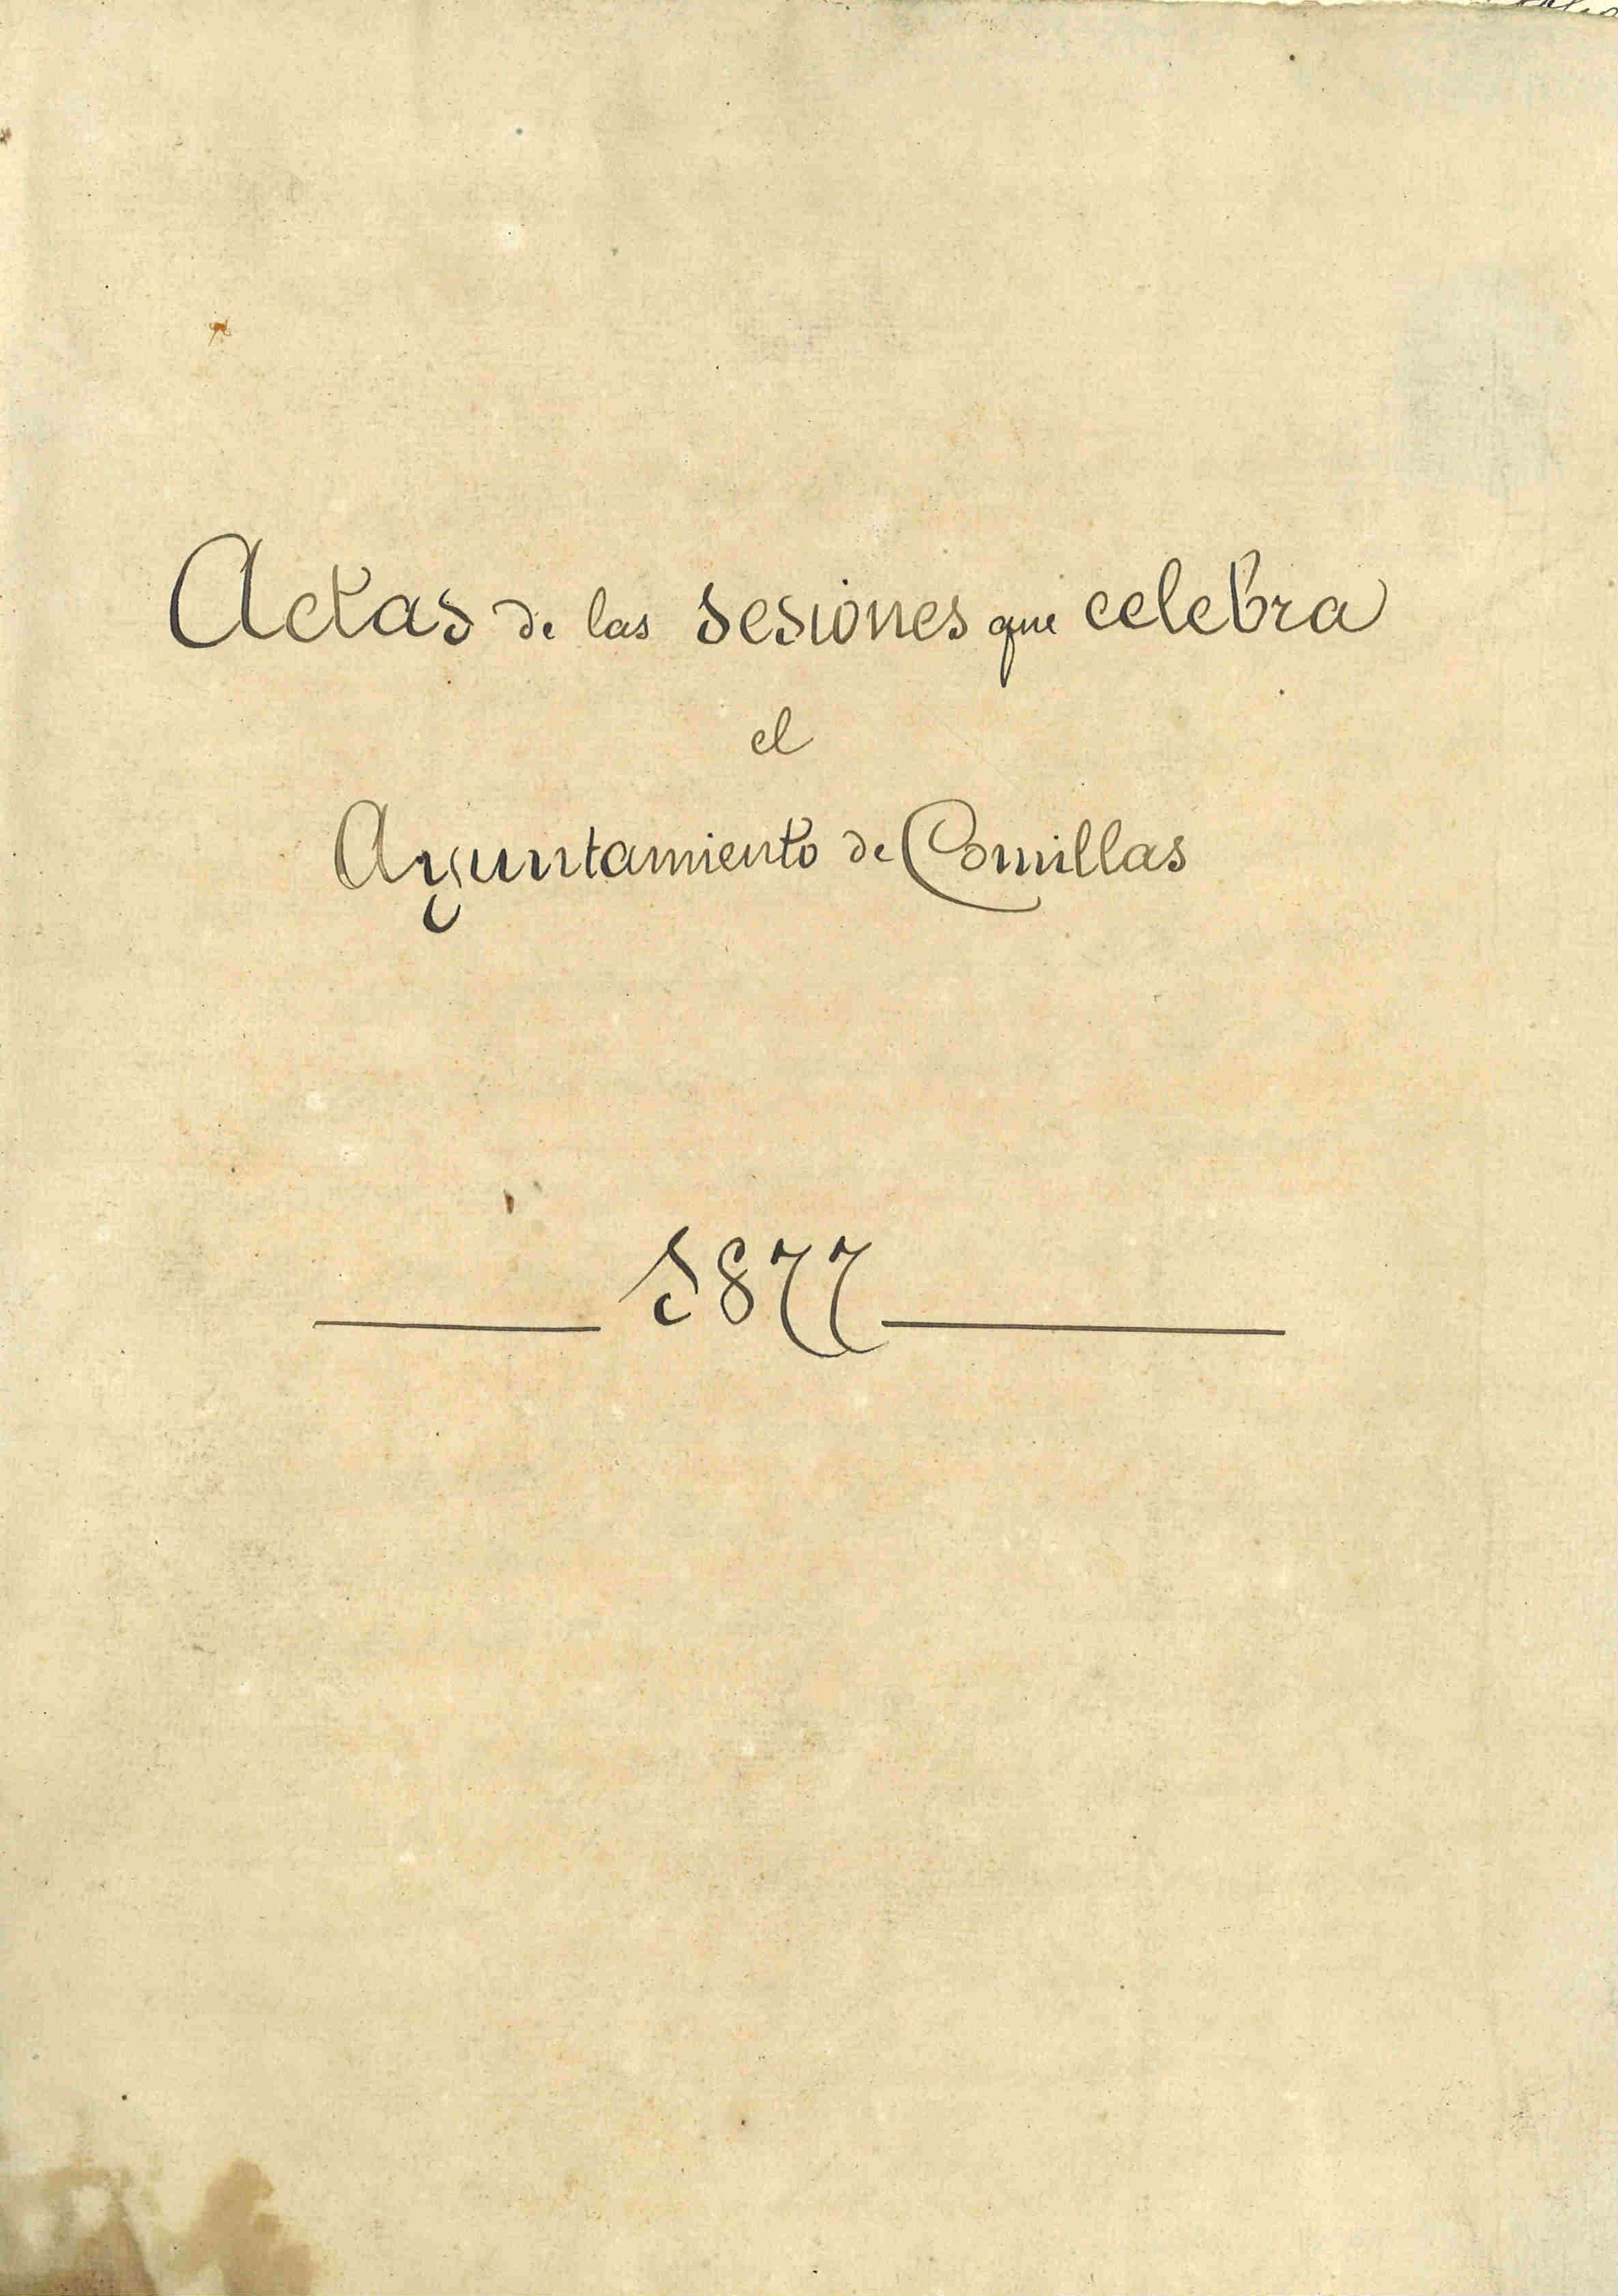 Actas de las sesiones que celebra
el
Ayuntamiento de Comillas
1877